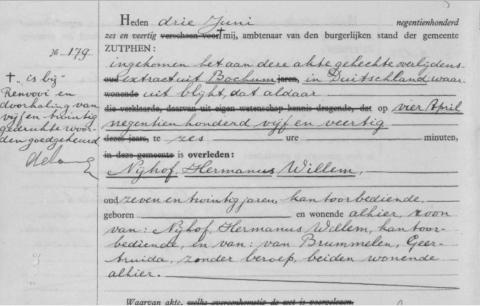 Heden drie Juni negentienhonderd
zes en veertig verscheen voor † mij, ambtenaar van den burgerlijken stand der gemeente
ZUTPHEN:
No. 179.
ingekomen het aan deze akte gehechte overlijdens-
oud extract uit Bochum jaren, in Duitschland, waar-
wonende uit blijkt, dat aldaar
die verklaarde, daarvan uit eigen wetenschap kennis dragende, dat op vier April
negentienhonderd vijf en veertig
dezes jaars, te zes ure minuten,
in deze gemeente is overleden:
Nijhof, Hermanus Willem,
oud zeven en twintig jaren, kantoorbediende,
geboren en wonende alhier, zoon
van: Nijhof, Hermanus Willem, kantoor-
bediende, en van: van Brummelen, Geer-
truida, zonder beroep, beiden wonende
alhier.
Waarvan akte, welke overeenkomstig de wet is voorgelezen.
† "is bij"
Renvooi en
doorhaling van
vijf en twintig
gedrukte woor-
den goedgekeurd